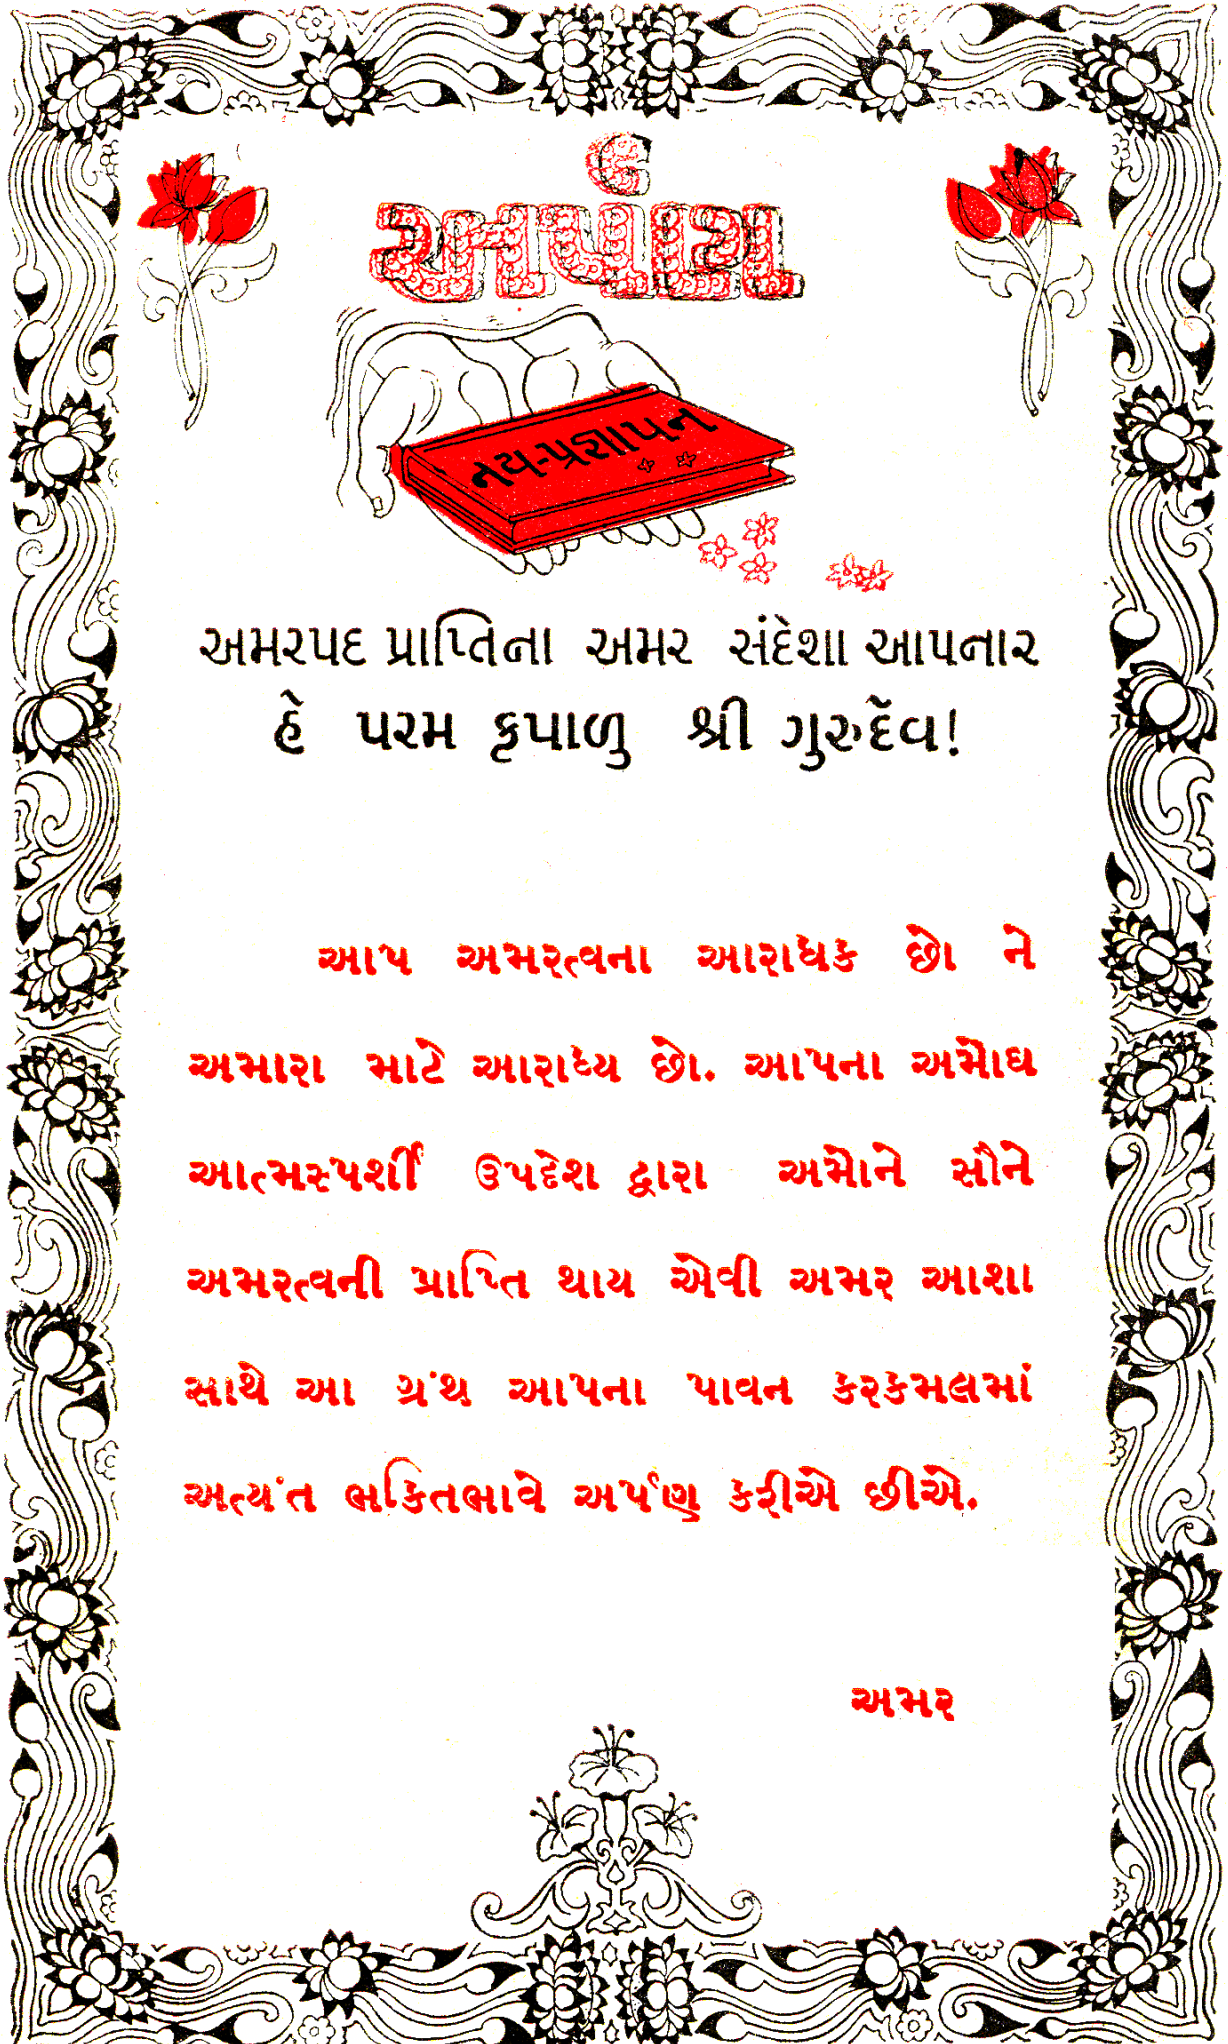 અર્પણ
નય-પ્રજ્ઞાપન
અમરપદ પ્રાપ્તિના અમર સંદેશા આપનાર
હે પરમ કૃપાળુ શ્રી ગુરુદેવ!
આપ અમરત્વના આરાધક છો ને
અમારા માટે આરાધ્ય છો. આપના અમોઘ
આત્મસ્પર્શી ઉપદેશ દ્વારા અમોને સૌને
અમરત્વની પ્રાપ્તિ થાય એવી અમર આશા
સાથે આ ગ્રંથ આપના પાવન કરકમલમાં
અત્યંત ભક્તિભાવે અર્પણ કરીએ છીએ.
અમર